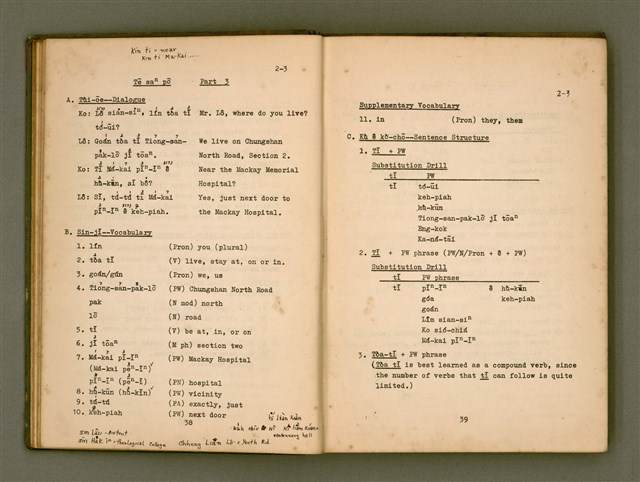 Kin ti = near
Kin ti Ma-kai....
2-3
Tē saⁿ pō Part 3
A. Tùi-ōe--Dialogue
Ko: Lô sian-siⁿ, lín tòa tī Mr. Lô, where do you live?
tó-ūi?
Lô: Goán tòa tī Tiong-san- We live on Chungshan
pak-lō jī tōaⁿ. North Road, Section 2.
Ko: Tī Má-kai pīⁿ-īⁿ ê Near the Mackay Memorial
hù-kūn, sī bô? Hospital?
Lô: Sī, tú-tú tī Má-kai Yes, just next door to
pīⁿ-īⁿ ê keh-piah. the Mackay Hospital.
B. Sin-jī--Vocabulary
1. lín (Pron) you (plural)
2. tòa tī (V) live, stay at, on or in.
3. goán/gún (Pron) we, us
4. Tiong-san-pak-lō (PW) Chungshan North Road
pak (N mod) north
lō (N) road
5. tī (V) be at, in, or on
6. jī tōaⁿ (M ph) section two
7. Má-kai pīⁿ-īⁿ (PW) Mackay Hospital
(Má-kai pēⁿ-īⁿ)
pīⁿ-īⁿ (pēⁿ-īⁿ) (PN) hospital
8. hù-kūn (hù-kīn) (PW) vicinity
9. tú-tú (PA) exactly, just
10. keh-piah (PW) next door
38
2-3
Supplementary Vocabulary
11. in (Pron) they, them
C. Kù ê kò-chō--Sentence Structure
1. Tī + PW
Substitution Drill
tī PW
tī tó-ūi
keh-piah
hù-kūn
Tiong-san-pak-lō jī tōaⁿ
Eng-kok
Ka-ná-tāi
2. Tī + PW phrase (PW/N/Pron + ê + PW)
Substitution Drill
tī PW phrase
tī pīⁿ-īⁿ ê hù-kūn
góa keh-piah
goán
Lîm sian-siⁿ
Ko sió-chiá
Má-kai pīⁿ-īⁿ
3. Tòa-tī + PW phrase
(Tòa tī is best learned as a compound verb, since
the number of verbs that tī can follow is quite
limited.)
39